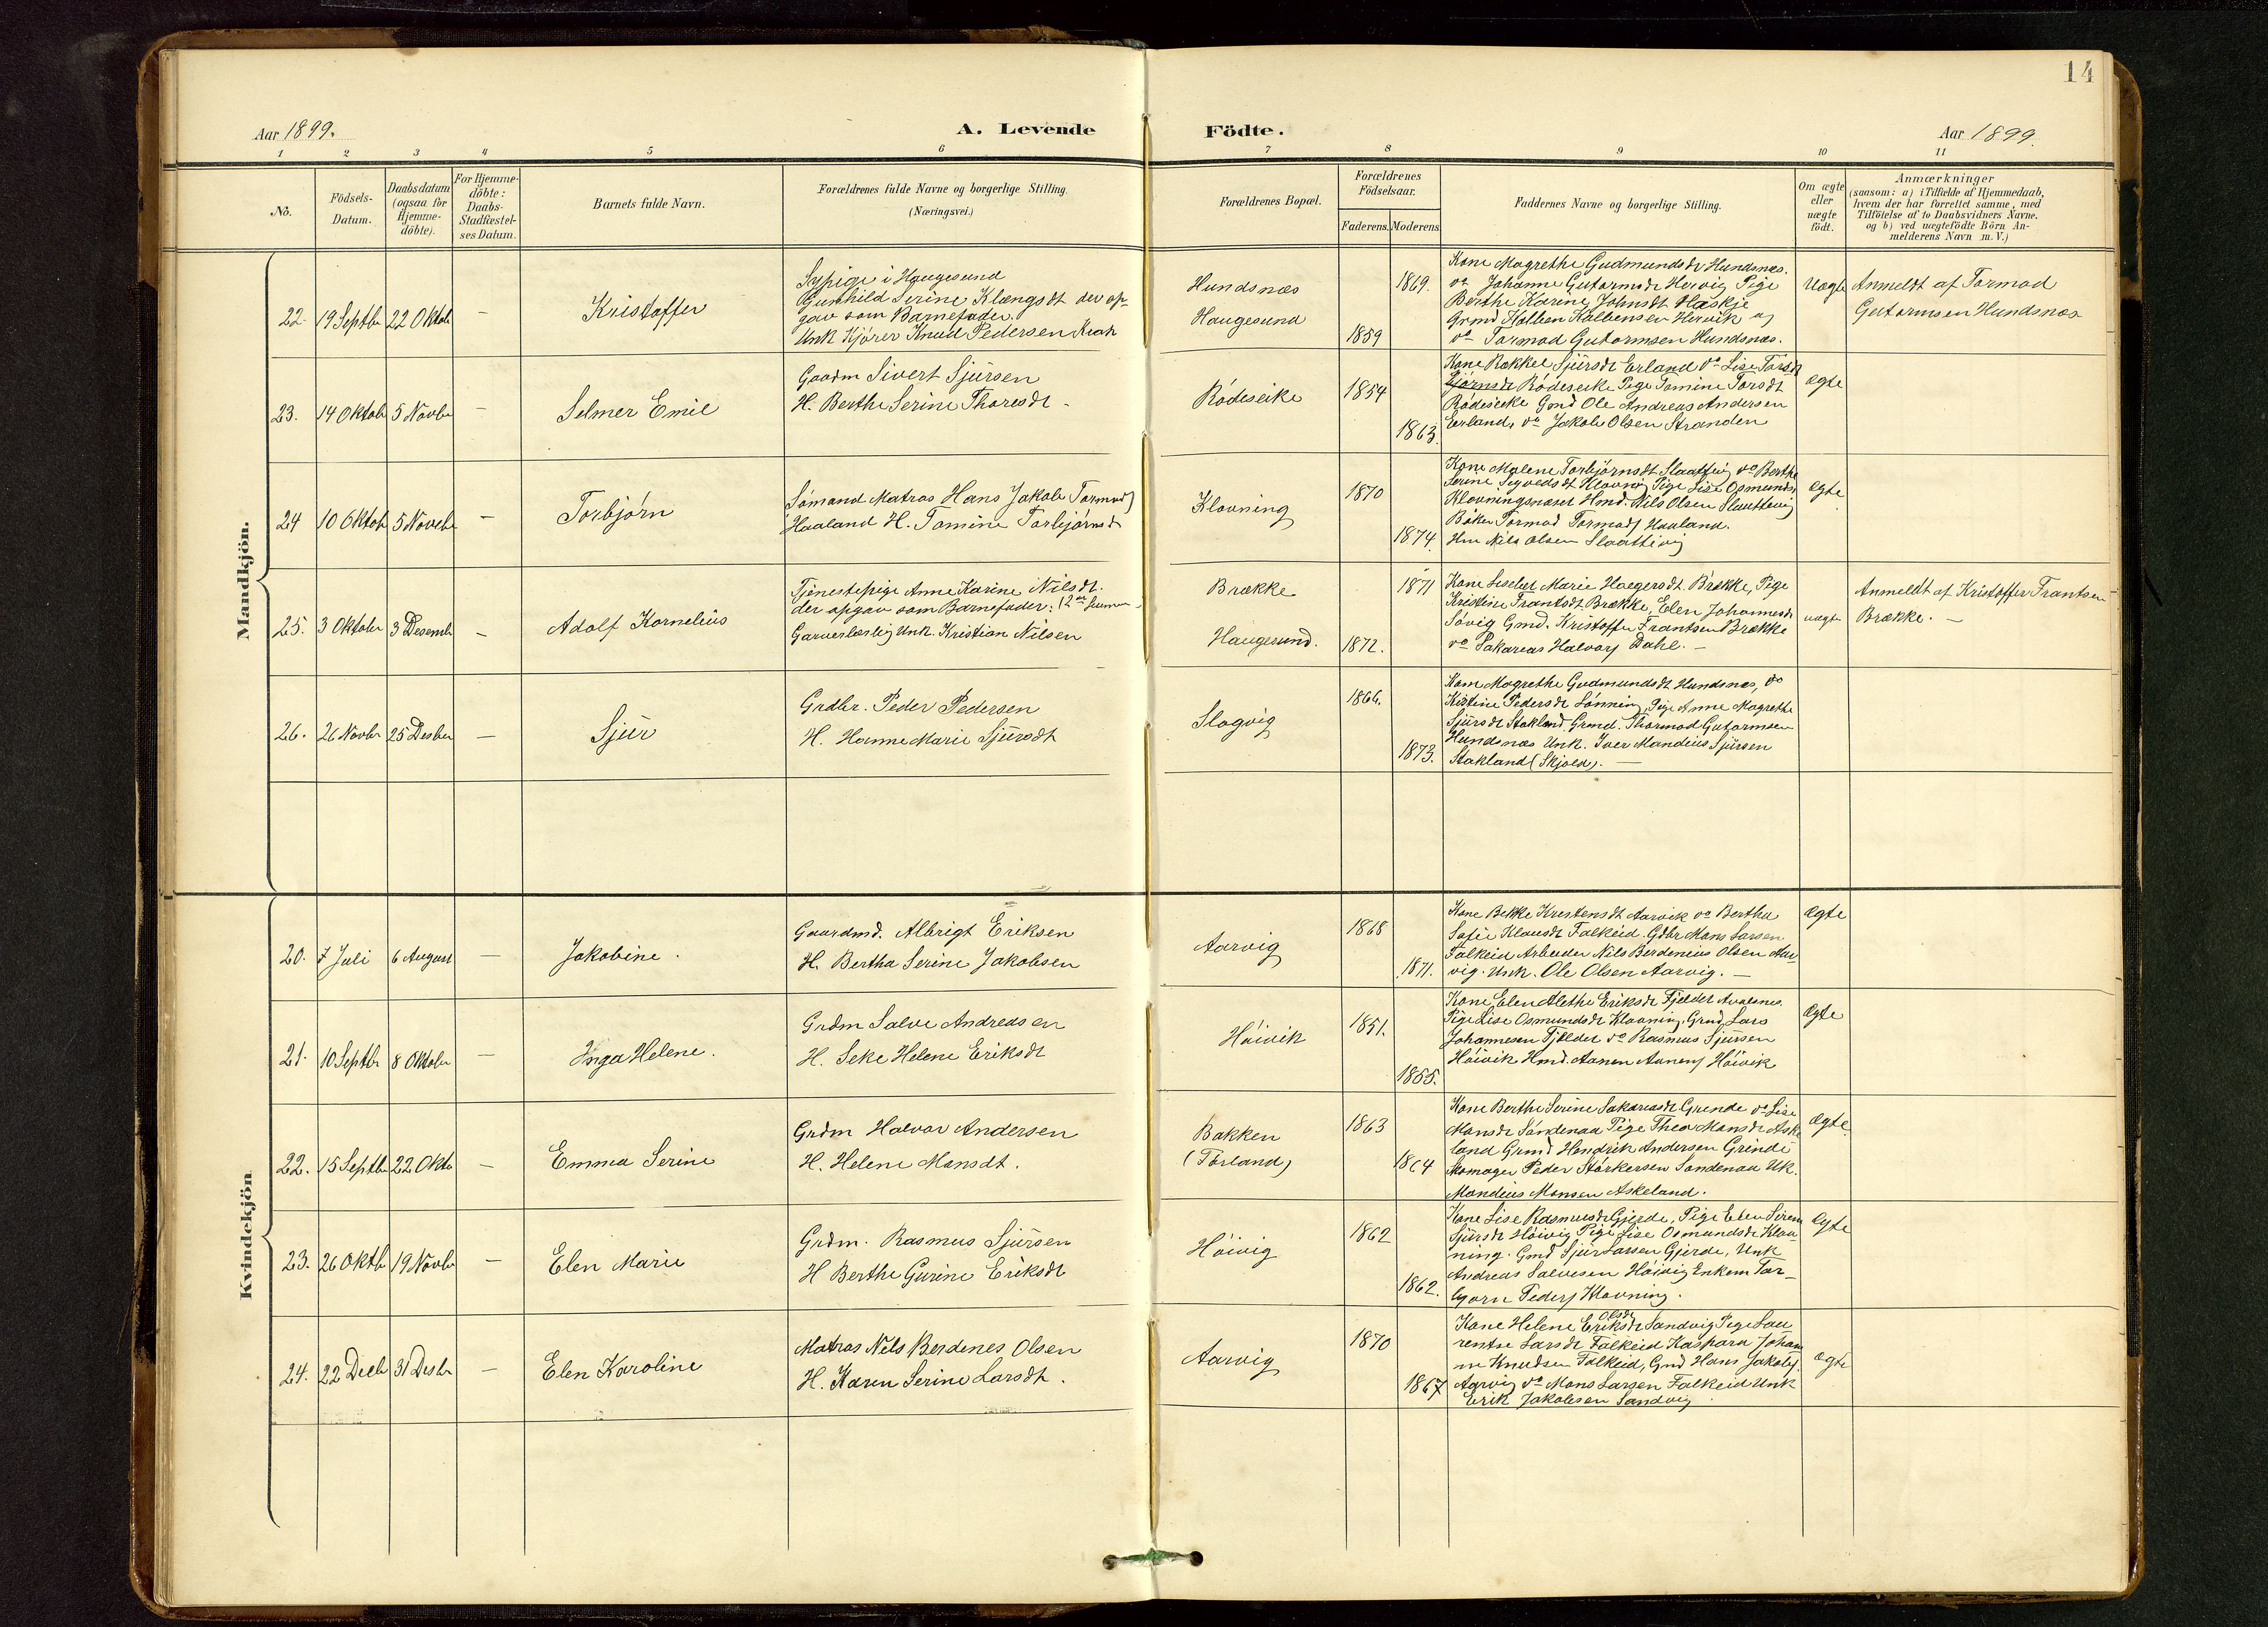 14
Aar 1899.
A. Levende Födte.
Aar 1899.
1 2 3 4 5 6 7 8 9 10 11
No.
Födsels-
Datum.
Daabsdatum
(ogsaa for
Hjemme-
döbte).
For Hjemme-
döbte:
Daabs-
Stadfæstel-
ses Datum.
Barnets fulde Navn.
Forældrenes fulde Navne og borgerlige Stilling.
(Næringsvei.)
Forældrenes Bopæl.
Forældrenes
Födselsaar.
Faderens. Moderens
Faddernes Navne og borgerlige Stilling.
Om ægte
eller
uægte
födt.
Anmærkninger
(saasom: a) i Tilfælde af Hjemmedaab,
hvem der har forrettet samme, med
Tilföielse af to Daabsvidners Navne.
og b) ved uægtefödte Börn An-
melderens Navn m. V.)
Mandkjön.
22. 19 Septbr 22 Oktob — Kristoffer
Sypige i Haugesund
Gunhild Serine Klængsdt der op-
gav som Barnefader.
Unk Kjører Knud Pedersen
Hundsnæs
Haugesund
1869.
1859
Kone Magrethe Gudmundsdt Hundsnæs.
do Johanne Gutormsdt Hervig Pige
Berthe Karine Johnsdt Hæskje
Grmd Kolbein Kolbensen Hervik og
do Tormod Gutormsen Hundsnæs.
Uægte
Anmeldt af Tormod
Gutormsen Hundsnæs
23. 14 Oktob 5 Novbr — Selmer Emil
Gaardm Sivert Sjursen
H. Berthe Serine Thoresdt -
Rødeseike
1854
1863.
Kone Rakkel Sjursdt Erland do Lise Torsdt
Rødeseike Pige Tomine Torsdt
Rødeseike Gmd Ole Andreas Andersen
Erland, do Jakob Olsen Stranden
ægte
24 10 Oktob 5 Novebr — Torbjørn
Sømand Matros Hans Jakob Tormods
Haaland H. Tomine Torbjørnsdt
Klovning
1870
1874.
Kone Malene Torbjørnsdt Slaattevig do Berthe
Serine Sigvedsdt Klovning Pige Lise Osmunds
Klovningsnæset Hmd. Nils Olsen Slaattevig
Bøker Tormod Tormods Haaland.
Hm Nils Olsen Slaattevig
ægte
25. 3 Oktober 3 Desemb — Adolf Kornelius
Tjenestepige Anne Karine Nilsdt.
der opgav som Barnefader: (2den
Unk. Kristian Nilsen
Brække
Haugesund.
1871
1872.
Kone Lisebet Marie Haagensdt Brække, Pige
Kristine Frantsdt Brække, Elen Johannesdt
Søvig Gmd. Kristoffer Frantsen Brække
do Sakarias Halvors Dahl. —
uægte
Anmeldt af Kristoffer Frantsen
Brække. —
26. 26 Novbr 25 Desber — Sjur
Grdbr. Peder Pedersen
H. Hanne Marie Sjursdt
Slogvig
1866.
1873.
Kone Magrethe Gudmundsdt Hundsnæs, do
Kistine Pedersdt Lønning, Pige Anne Magrethe
Sjursdt Stakland, Grmd. Thormod Gutormsen
Hundsnæs Unk. Iver Mandius Sjursen
Stakland (Skjold). —
Kvindekjön
20. 7 Juli 6 August — Jakobine.
Gaardmd. Albrigt Eriksen
H. Bertha Serine Jakobsen
Aarvig
1868
1871.
Kone Bekke Kristensdt Aarvik do Bertha
Sofie Klausdt Falkeid. Gdbr Mons Larsen
Falkeid Arbeider Nils Berdenius Olsen Aar-
vig. Unk. Ole Olsen Aarvig. —
Ægte
21. 10 Septbr 8 Oktober — Inga Helene.
Grdm Salve Andreasen
H. Seke Helene Eriksdt
Høivik
1851.
1855.
Kone Elen Alethe Eriksdt Fjeldet Avalsnes.
Pige Lise Osmundsdt Klovning, Grmd, Lars
Johannesen Fjeldet do Rasmus Sjursen
Høivik Hmd. Aanen Aanens Høivik
Ægte
22. 15 Septbr 22 Okto — Emma Serine
Grdm Halvor Andersen
H. Helene Monsdt.
Bakken
(Førland)
1863
1864
Kone Berthe Serine Sakariasdt Grinde do Lise
Monsdt Søndenaa Pige Thea Monsdt Aske
land Grmd Hendrik Andersen Grinde
Skomager Peder Størkersen Søndenaa Uk.
Mandius Monsen Askeland.
Ægte
23. 26 Oktbr 19 Novbr — Elen Marie
Grdm. Rasmus Sjursen
H Berthe Gurine Eriksdt
Høivig
1862
1862.
Kone Lise Rasmusdt Gjerde, Pige Elen Siren
Sjursdt Høivig Pige Lise Osmundsdt Klov-
ning. Gmd Sjur Larsen Gjerde, Unk
Andreas Salvesen Høivig Enkem Tor-
bjørn Peders Klovning.
Ægte
24. 22 Decb 31 Desbr — Elen Karoline
Matros Nils Berdenes Olsen
H. Karen Serine Larsdt.
Aarvig
1870
1867
Olsdt
Kone Helene Eriksdt Sandvig Pige Lau
rentse Larsdt Falkeid Kaspara Johan
ne Knudsen Falkeid, Gmd Hans Jakobs
Aarvig do Mons Larsen Falkeid Unk
Erik Jakobsen Sandvig
Ægte